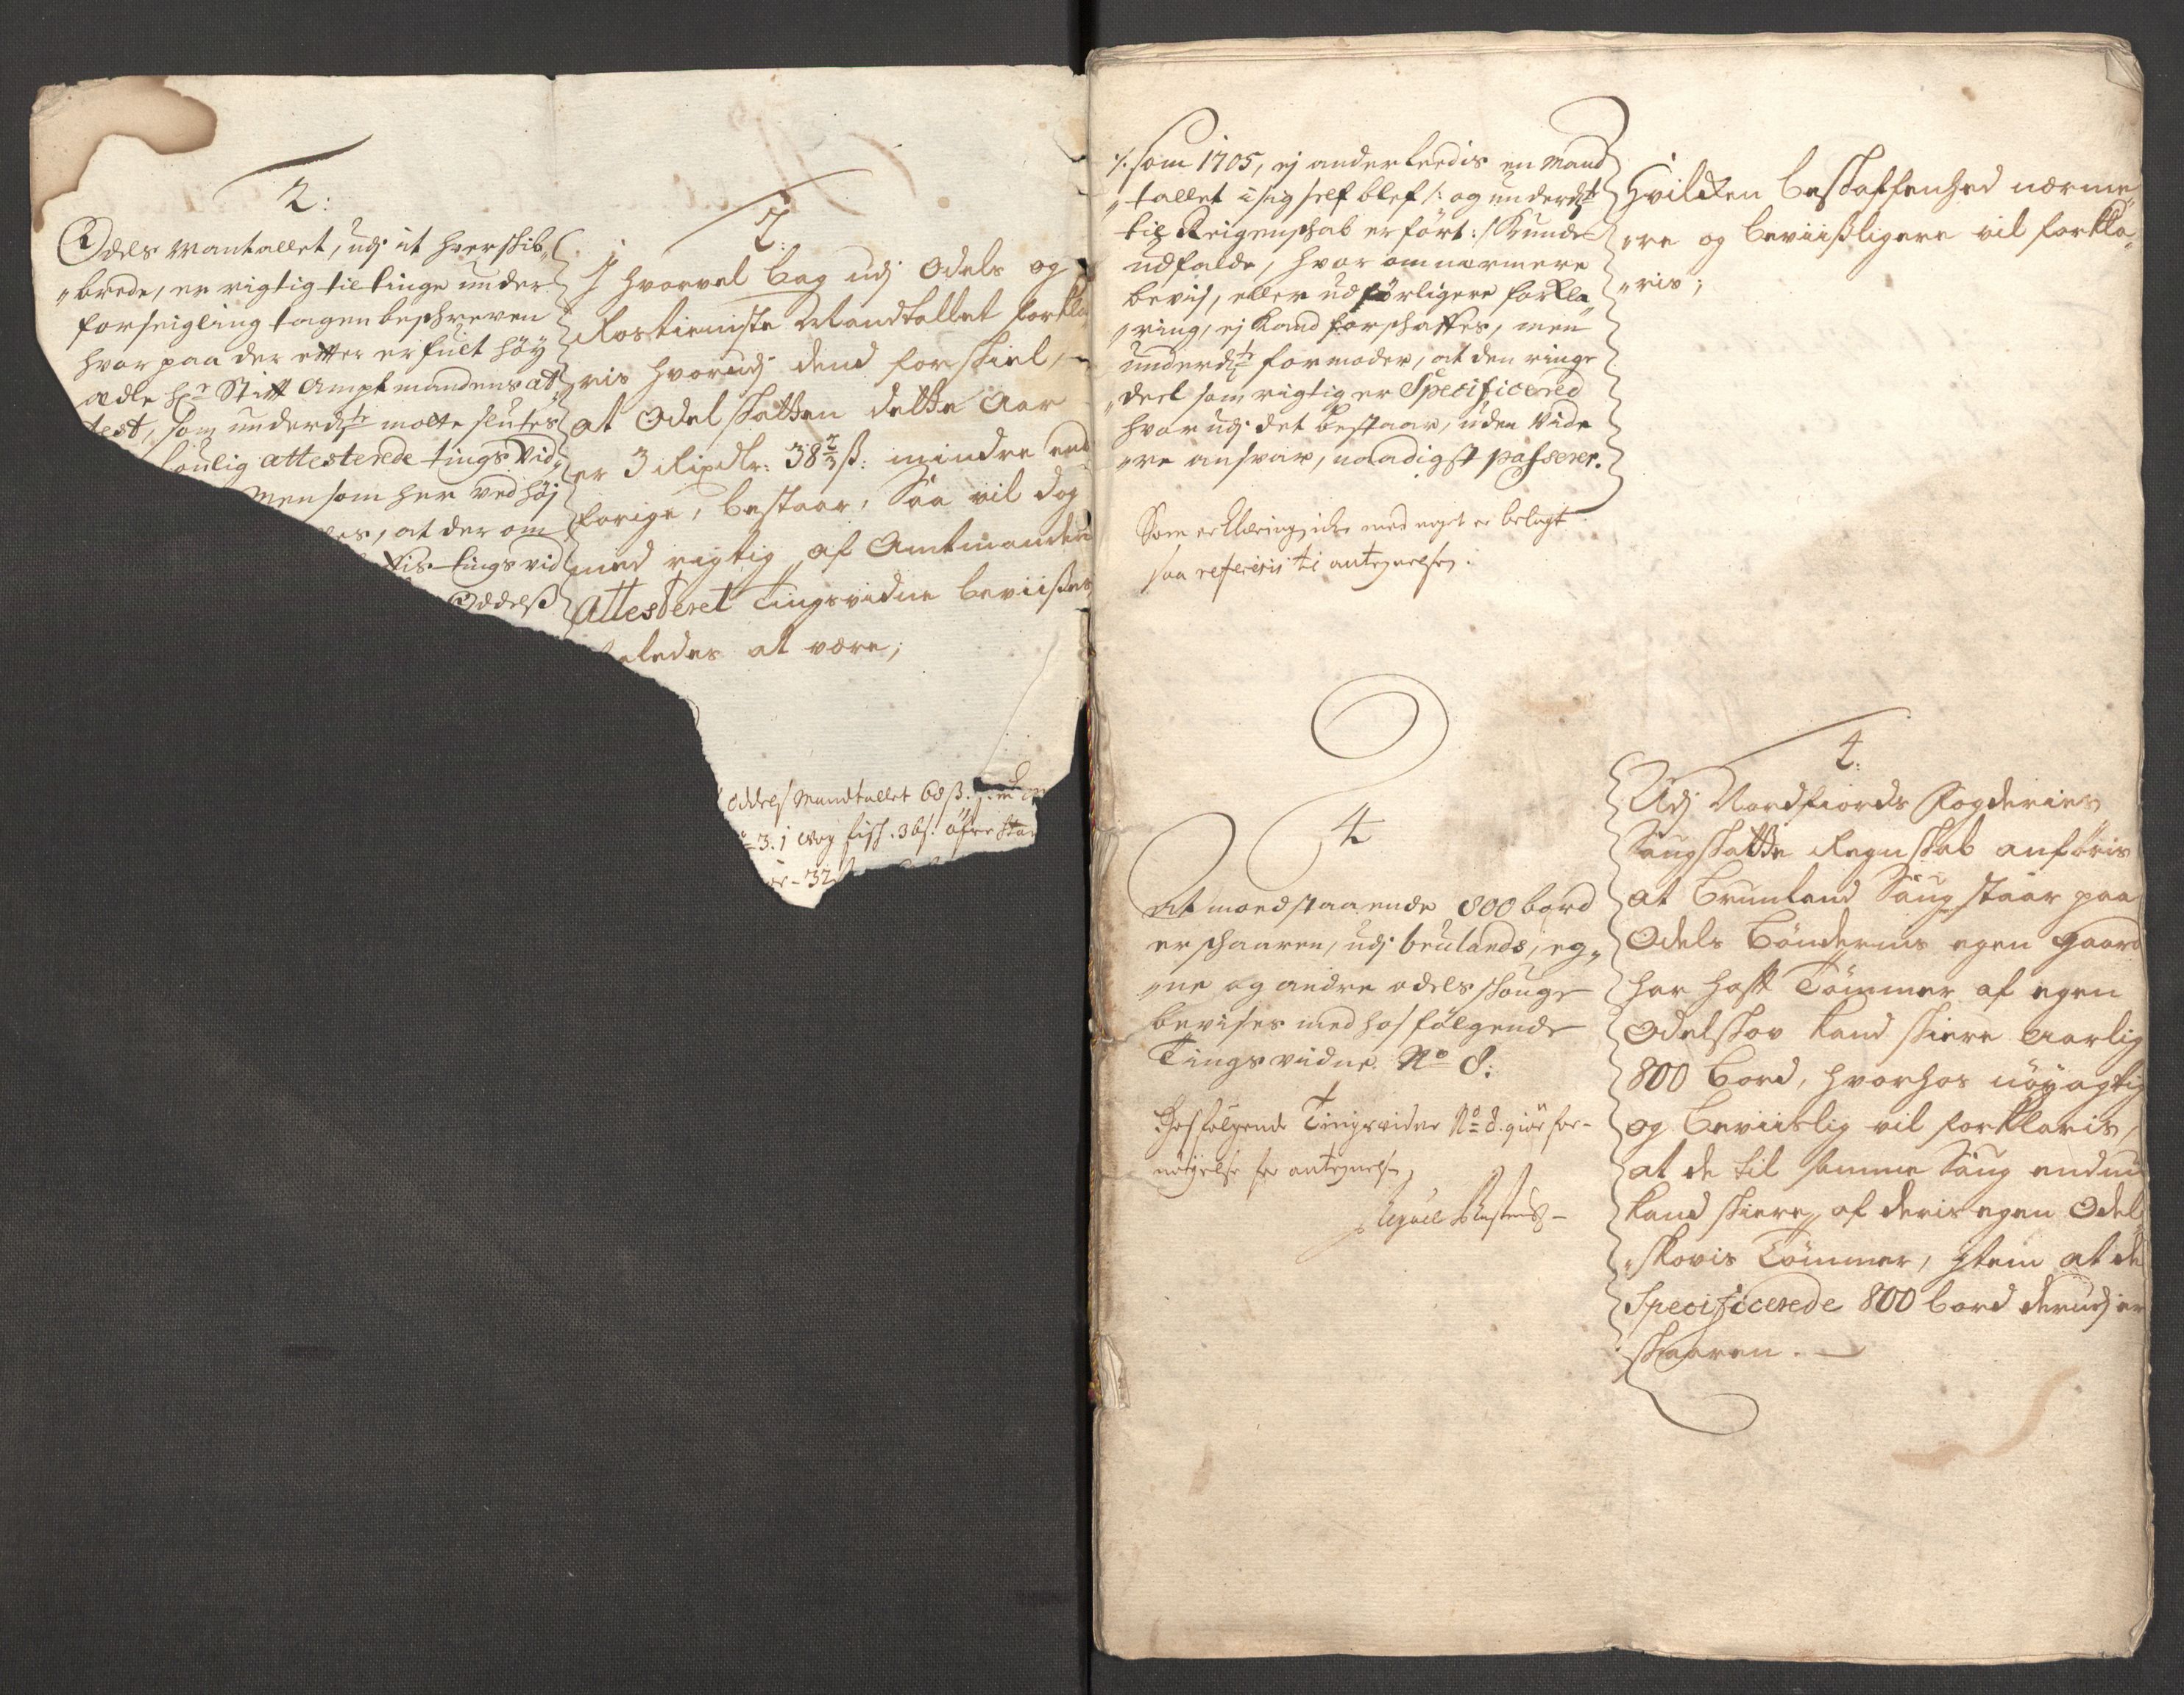 2:
Odels Mantallet, udj it hver skib„
„brede, er rigtig til tinge under
forseigling tagen beskreven
hvor paa der etter er fult høy
ædle Hr Stift Amptmandens at„
test, som underdte motte slutes
lovlig attesterede tings vid„
Men som her ved høj
es, at der om
tings vid
Oddels
2:
J hvorvel bag udj Odels og
Rostieniste Mandtallet forkla„
ris hvorudj dend forskiel,
at Odel skatten dette Aar
er 3 Rixdlr: 38 2/3 ß: mindre end
forige, bestaar, Saa vil dog
med rigtig af Amtmanden
Attesteret Tingsvidne beviisses,
saaledes at være;
Oddels Mandtallet 68 ß.
3. 1 wog fisk. 36 ß.
32
./. som 1705, ej anderleedis en Mand
„tallet i sig self blef /: og underdte
til Reigenskab er ført :/ Kunde
udfalde, hvor om nærmere
bevis, eller udførligere forkla„
„ring, ej kand forschaffes, men
underdte formoder, at den ringe
„deel som rigtig er Specificered
hvor udj det bestaar, uden Vide
„re ansvar, naadigst passerer.
Som erklæringen icke med noget er belagt
saa refereris til antegnelsen.
Hvilcken beskaffenhed nærme„
„re og beviisligere vil forkla„
„ris;
4
At moedstaaende 800 bord
er skaaren, udj brulands, eg„
„ne og andre odels skouge
bevises med hos følgende
Tingsvidne No 8:
Hosfølgende Tingsvidne No 8. giør for-
nøyelse for antegnelsen
4:
Udj Nordfiords Fogderies
Saugskatte Regnskab anføris
at Brunland Saug staar paa
Odels Bøndernis egen gaard
har haft Tømmer af egen
Odelskov kand skiere Aarlig
800 Bord, hvorhos nøyagtig
og beviislig vil forklaris,
at de til samme Saug endnu
kand skiere, af deris egen Odel„
„skovis Tømmer, Item at de
Specificerede 800 bord derudj er
skaaren.